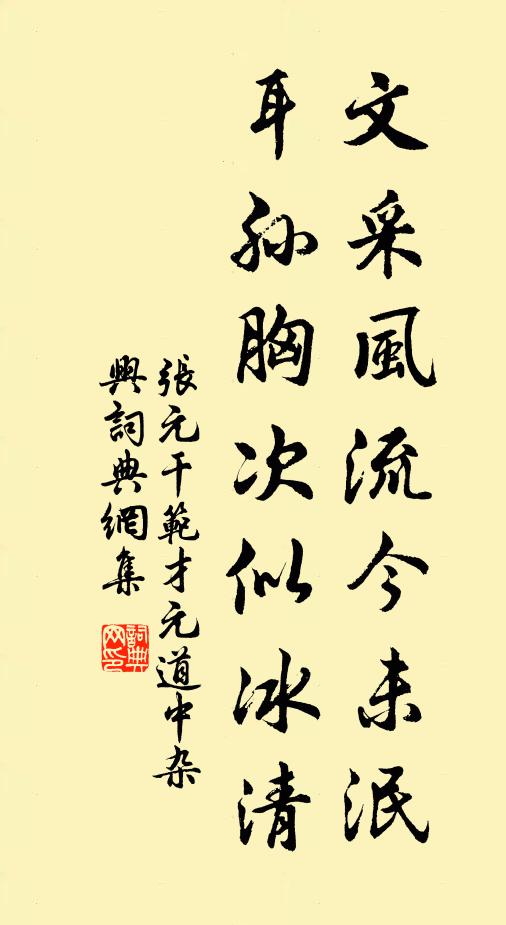 文采風流今未泯
耳孫胸次似冰清
張元干範才元道中杂
興詞典網集
詞典
网印